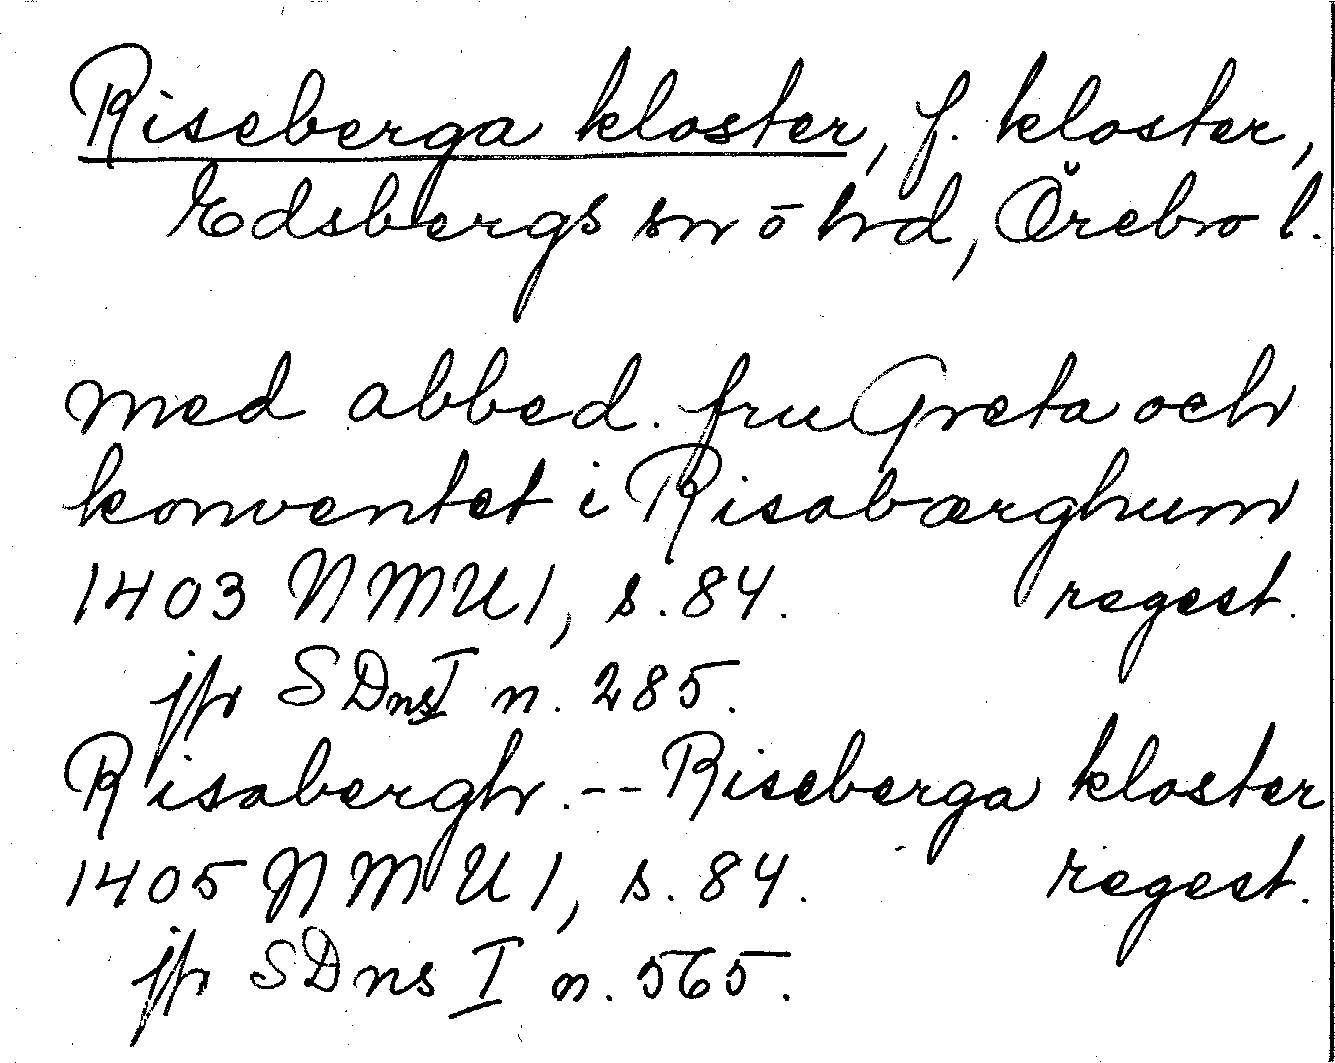 Riseberga kloster, f. kloster,
Edsbergs sn o hd, Örebro l.
med abbed. fru Greta och
konventet i Risabærghum
1403 NMU 1, s. 84. regest.
jfr SDns I n. 285.
Risabergh. -- Riseberga kloster
1405 NMU 1, s. 84. regest.
jfr SDns I n. 565.